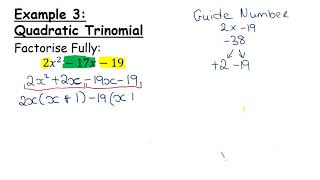 Example 3:
Quadratic Trinomial
Factorise Fully:
2x² − 17x − 19
2x² + 2x − 19x − 19
2x(x + 1) − 19(x 1
Guide Number
2 x −19
−38
+2 −19